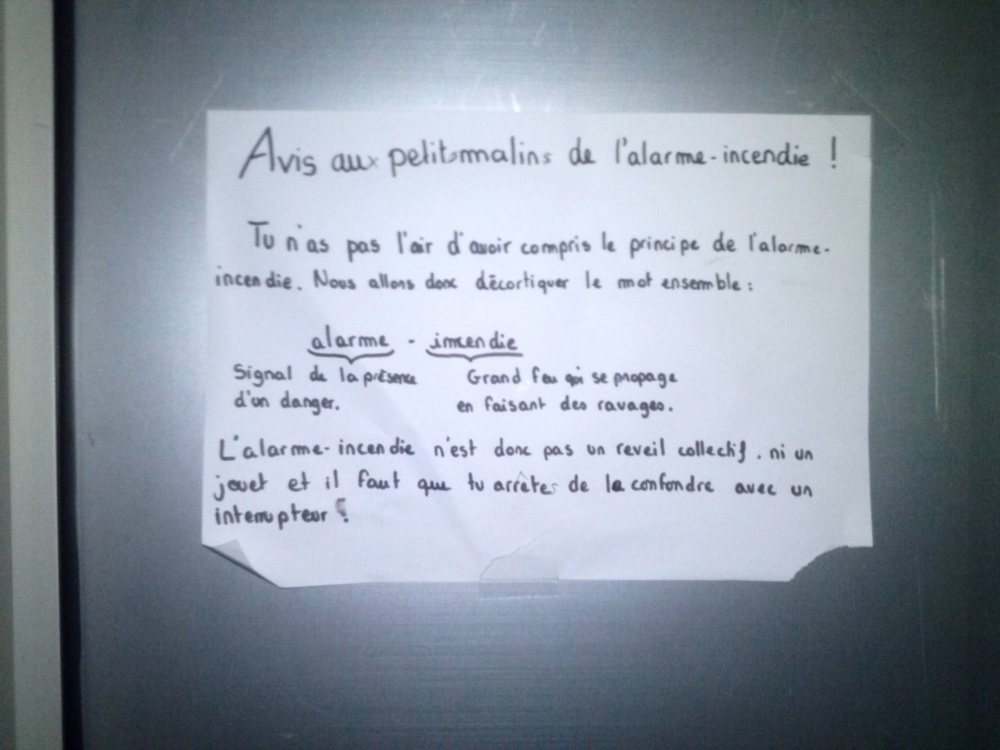 Avis aux petits malins de l'alarme-incendie !
Tu n'as pas l'air d'avoir compris le principe de l'alarme-
incendie. Nous allons donc décortiquer le mot ensemble :
alarme - incendie
Signal de la présence Grand feu qui se propage
d'un danger. en faisant des ravages.
L'alarme-incendie n'est donc pas un reveil collectif, ni un
jouet et il faut que tu arrêtes de la confondre avec un
interrupteur !